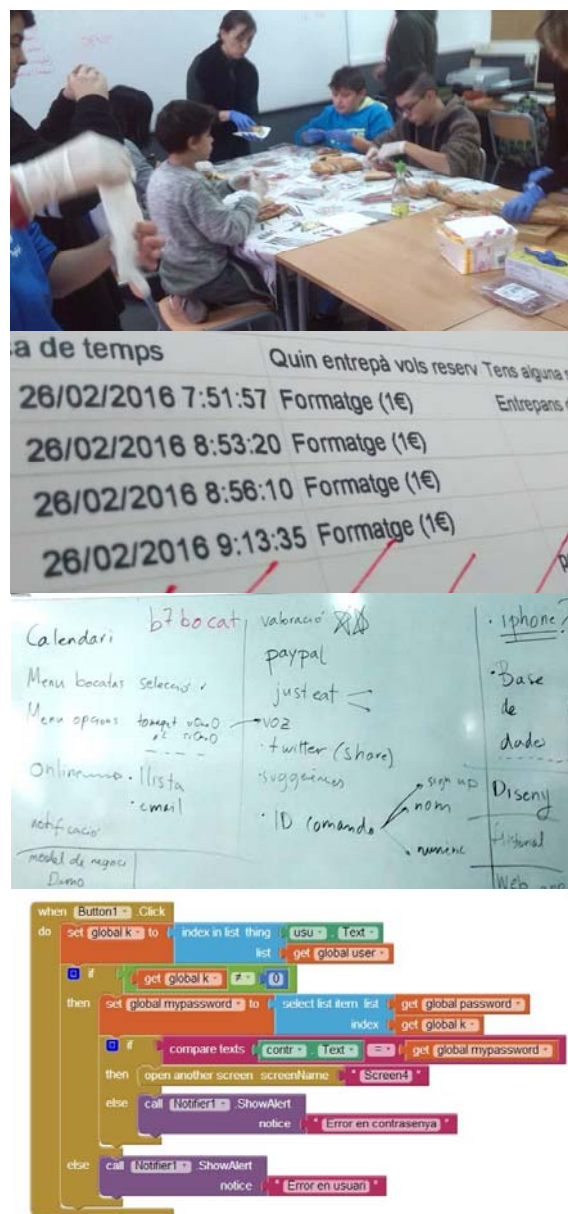 a de temps
Quin entrepà vols reserv
Tens alguna
26/02/2016 7:51:57 Formatge (1€)
Entrepans
26/02/2016 8:53:20 Formatge (1€)
26/02/2016 8:56:10 Formatge (1€)
26/02/2016 9:13:35 Formatge (1€)
Calendari
b7 bocat
Menu bocatas selecció
Menu opcions tomaquet
Online
· llista
· email
notificació
model de negoci
valoració
paypal
just eat
voz
· twitter (share)
· suggerències
· ID comanda
sign up
nom
numèric
· iphone?
· Base
de
dades
Diseny
Historial
Web app
when Button1 .Click
do set global k to index in list thing usu . Text
list get global user
if get global k ≠ 0
then set global mypassword to select list item list get global password
index get global k
if compare texts contr . Text = get global mypassword
then open another screen screenName " Screen4 "
else call Notifier1 .ShowAlert
notice " Error en contrasenya "
else call Notifier1 .ShowAlert
notice " Error en usuari "